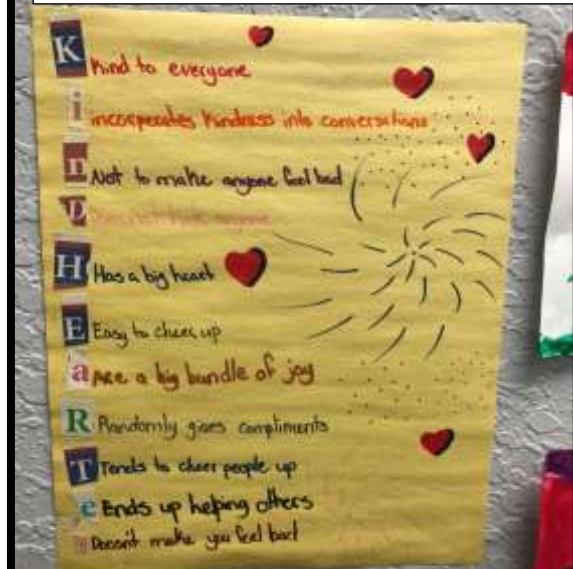 K Kind to everyone
i incorporates kindness into conversations
n Not to make anyone feel bad
D Does not hate anyone
H Has a big heart
E Easy to cheer up
a Are a big bundle of joy
R Randomly gives compliments
T Tends to cheer people up
e Ends up helping others
Doesn't make you feel bad